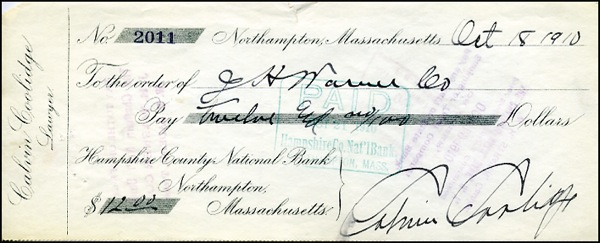 No. 2011 Northampton, Massachusetts, Oct 18 1910
To the order of J H Warner Co
Pay Twelve & no/00 Dollars
PAID
Hampshire Co. Nat'l Bank
MASS.
Hampshire County National Bank
Northampton,
$12.00 Massachusetts.
Calvin Coolidge
Calvin Coolidge
Lawyer